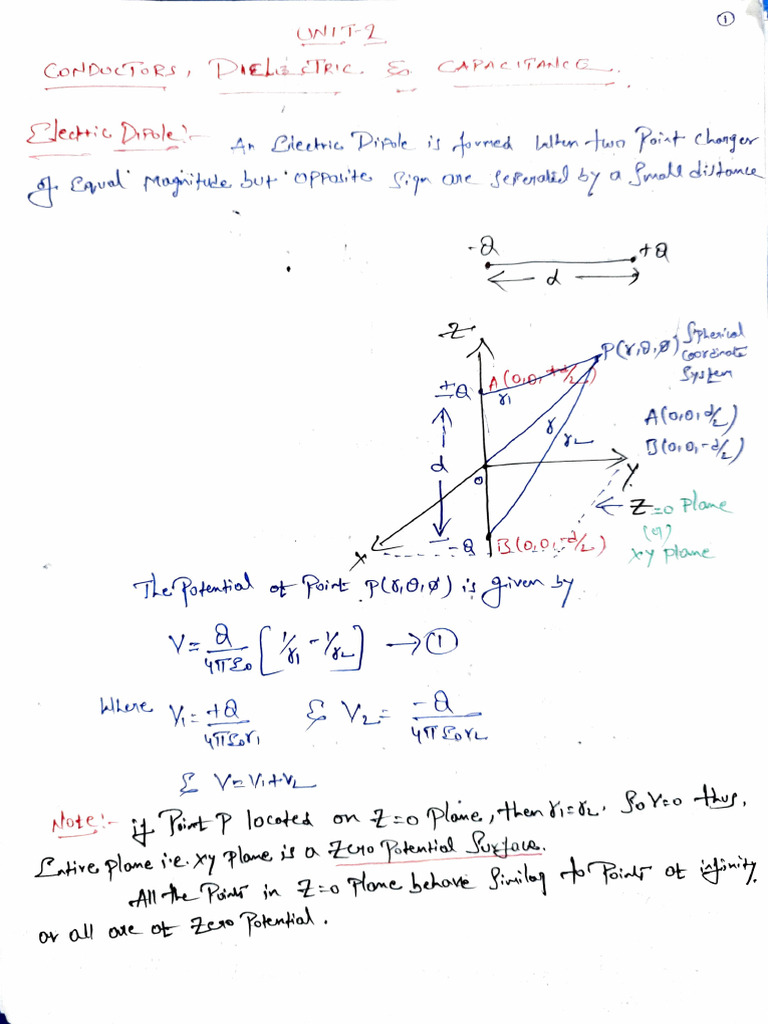 1
UNIT-2
CONDUCTORS, DIELECTRIC & CAPACITANCE.
Electric Dipole:- An Electric Dipole is formed when two Point Charges
of Equal Magnitude but opposite Sign are Seperated by a Small distance
-Q +Q
d
Z
P(r,θ,φ) Spherical
coordinate
System
+Q A(0,0,+d/2)
r1
A(0,0,d/2)
B(0,0,-d/2)
r r2
d
O
Y
Z=0 Plane
(or)
xy plane
X
-Q B(0,0,-d/2)
The Potential at Point P(r,θ,φ) is given by
V = Q/4πε0 [1/r1 - 1/r2] → 1
Where V1 = +Q/4πε0r1 & V2 = -Q/4πε0r2
& V = V1+V2
Note:- if Point P located on Z=0 Plane, then r1=r2. So V=0 thus,
Entire plane i.e. xy plane is a Zero Potential Surface.
All the Points in Z=0 Plane behave Similar to Points at infinity
or all are at Zero Potential.